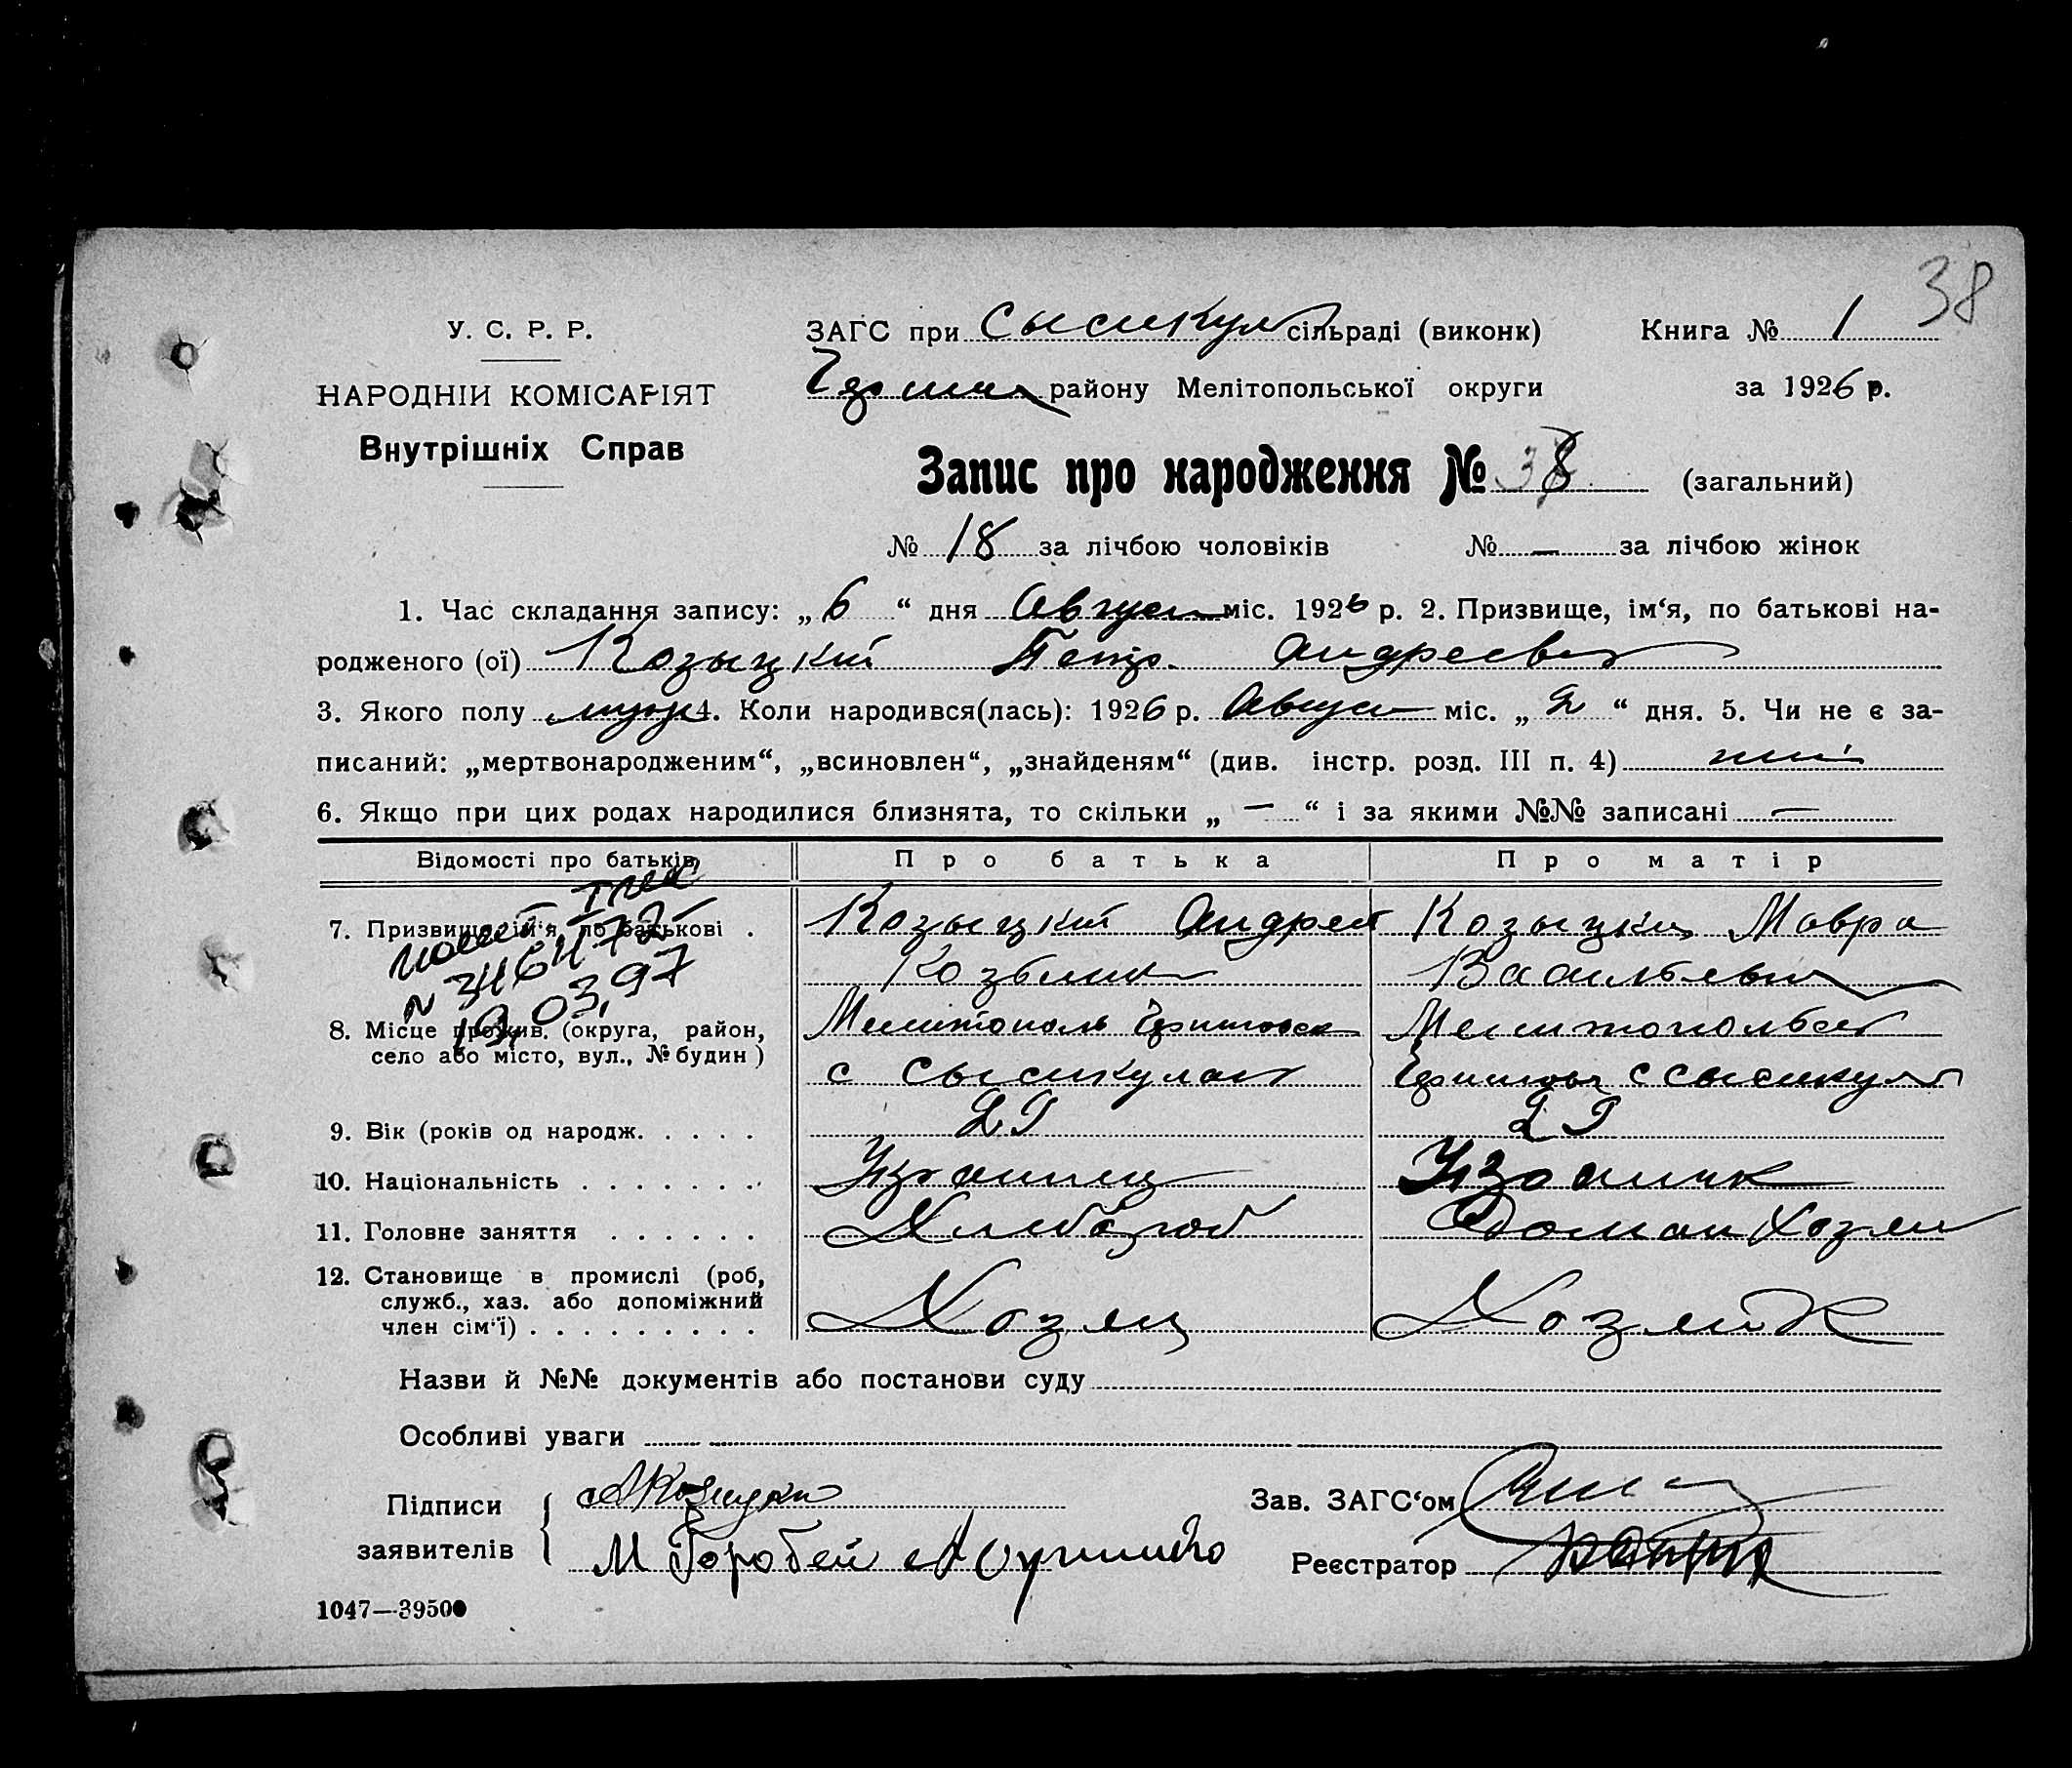 38
У. С. Р. Р.
ЗАГС при Сысикул сільраді (виконк)
Книга № 1
НАРОДНІЙ КОМІСАРІЯТ
району Мелітопольської округи
за 1926 р.
Внутрішніх Справ
Запис про народження № 38 (загальний)
№ 18 за лічбою чоловіків № — за лічбою жінок
1. Час складання запису: „6“ дня Август міс. 1926 р. 2. Призвище, ім‘я, по батькові на-
родженого (ої) Козыцкий Петр Андреевич
3. Якого полу муж 4. Коли народився(лась): 1926 р. Август міс. „2“ дня. 5. Чи не є за-
писаний: „мертвонародженим“, „всиновлен“, „знайденям“ (див. інстр. розд. III п. 4)
6. Якщо при цих родах народилися близнята, то скільки „ — “ і за якими №№ записані —
Відомості про батьків
Про батька
Про матір
7. Призвище, ім‘я, по батькові .
Козыцкий Андрей
Козьмич
Козыцкая Мавра
Васильевна
N 3464472
19.03.97
8. Місце прожив. (округа, район,
село або місто, вул., № будин )
Мелитополь
с Сысикулак
Мелитопольск
с Сысикул
9. Вік (років од народж. . . . .
10. Національність . . . . . . .
Украинец
Украинк
11. Головне заняття . . . . . .
Хлебороб
Домаш Хозяй
12. Становище в промислі (роб,
служб., хаз. або допоміжний
член сім‘ї) . . . . . . . . .
Хозяин
Хозяйк
Назви й №№ документів або постанови суду
Особливі уваги
Підписи
заявителів
М Воробей
Зав. ЗАГС‘ом
Реєстратор
1047—39500